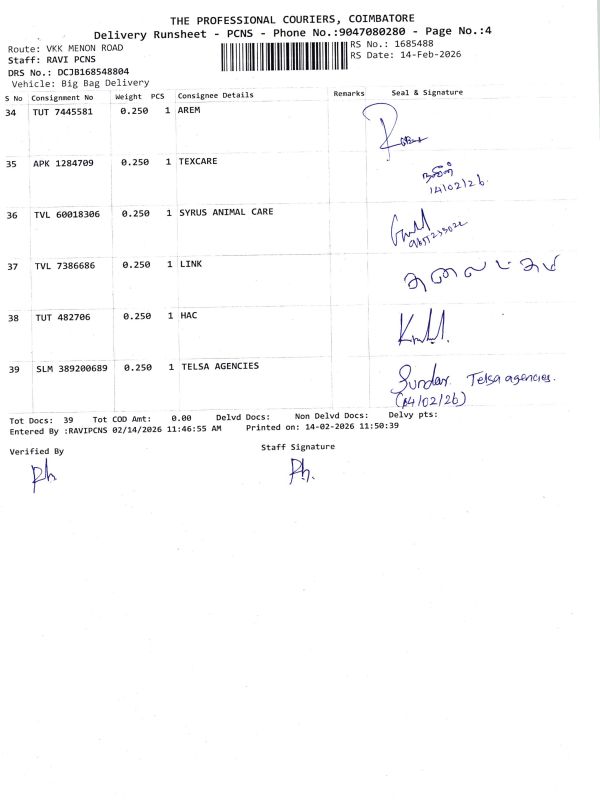 THE PROFESSIONAL COURIERS, COIMBATORE
Delivery Runsheet - PCNS - Phone No.:9047080280 - Page No.:4
Route: VKK MENON ROAD
RS No.: 1685488
Staff: RAVI PCNS
RS Date: 14-Feb-2026
DRS No.: DCJB168548804
Vehicle: Big Bag Delivery
S No Consignment No Weight PCS Consignee Details Remarks Seal & Signature
34 TUT 7445581 0.250 1 AREM
35 APK 1284709 0.250 1 TEXCARE
14/02/26.
36 TVL 60018306 0.250 1 SYRUS ANIMAL CARE
37 TVL 7386686 0.250 1 LINK
38 TUT 482706 0.250 1 HAC
39 SLM 389200689 0.250 1 TELSA AGENCIES Sundar Telsa agencies.
(14/02/26)
Tot Docs: 39 Tot COD Amt: 0.00 Delvd Docs: Non Delvd Docs: Delvy pts:
Entered By :RAVIPCNS 02/14/2026 11:46:55 AM Printed on: 14-02-2026 11:50:39
Verified By Staff Signature